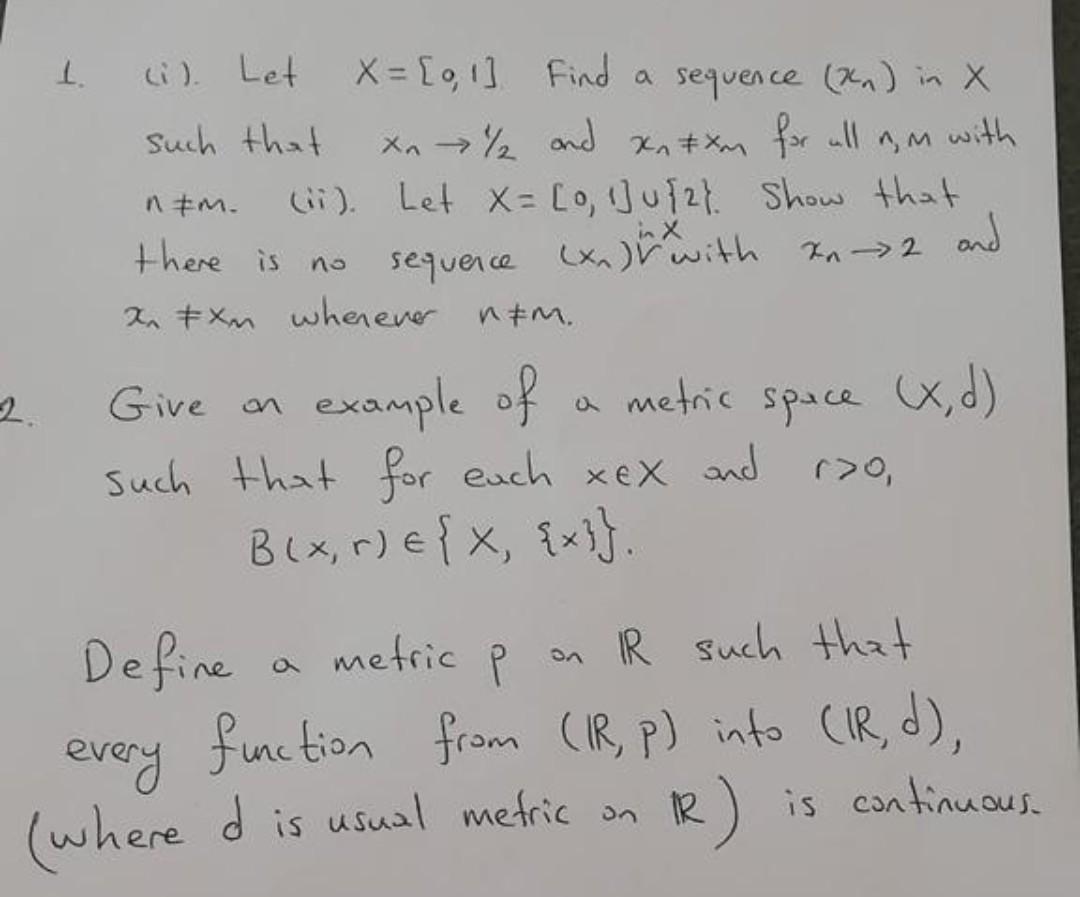 1. (i). Let X = [0,1] Find a sequence (xₙ) in X
such that xₙ → 1/2 and xₙ ≠ xₘ for all n, m with
n ≠ m. (ii). Let X = [0,1] ∪ {2}. Show that
there is no sequence (xₙ) in X with xₙ → 2 and
xₙ ≠ xₘ whenever n ≠ m.
2. Give an example of a metric space (X,d)
such that for each x ∈ X and r > 0,
B(x, r) ∈ { X, {x}}.
Define a metric p on ℝ such that
every function from (ℝ, p) into (ℝ, d),
(where d is usual metric on ℝ) is continuous.